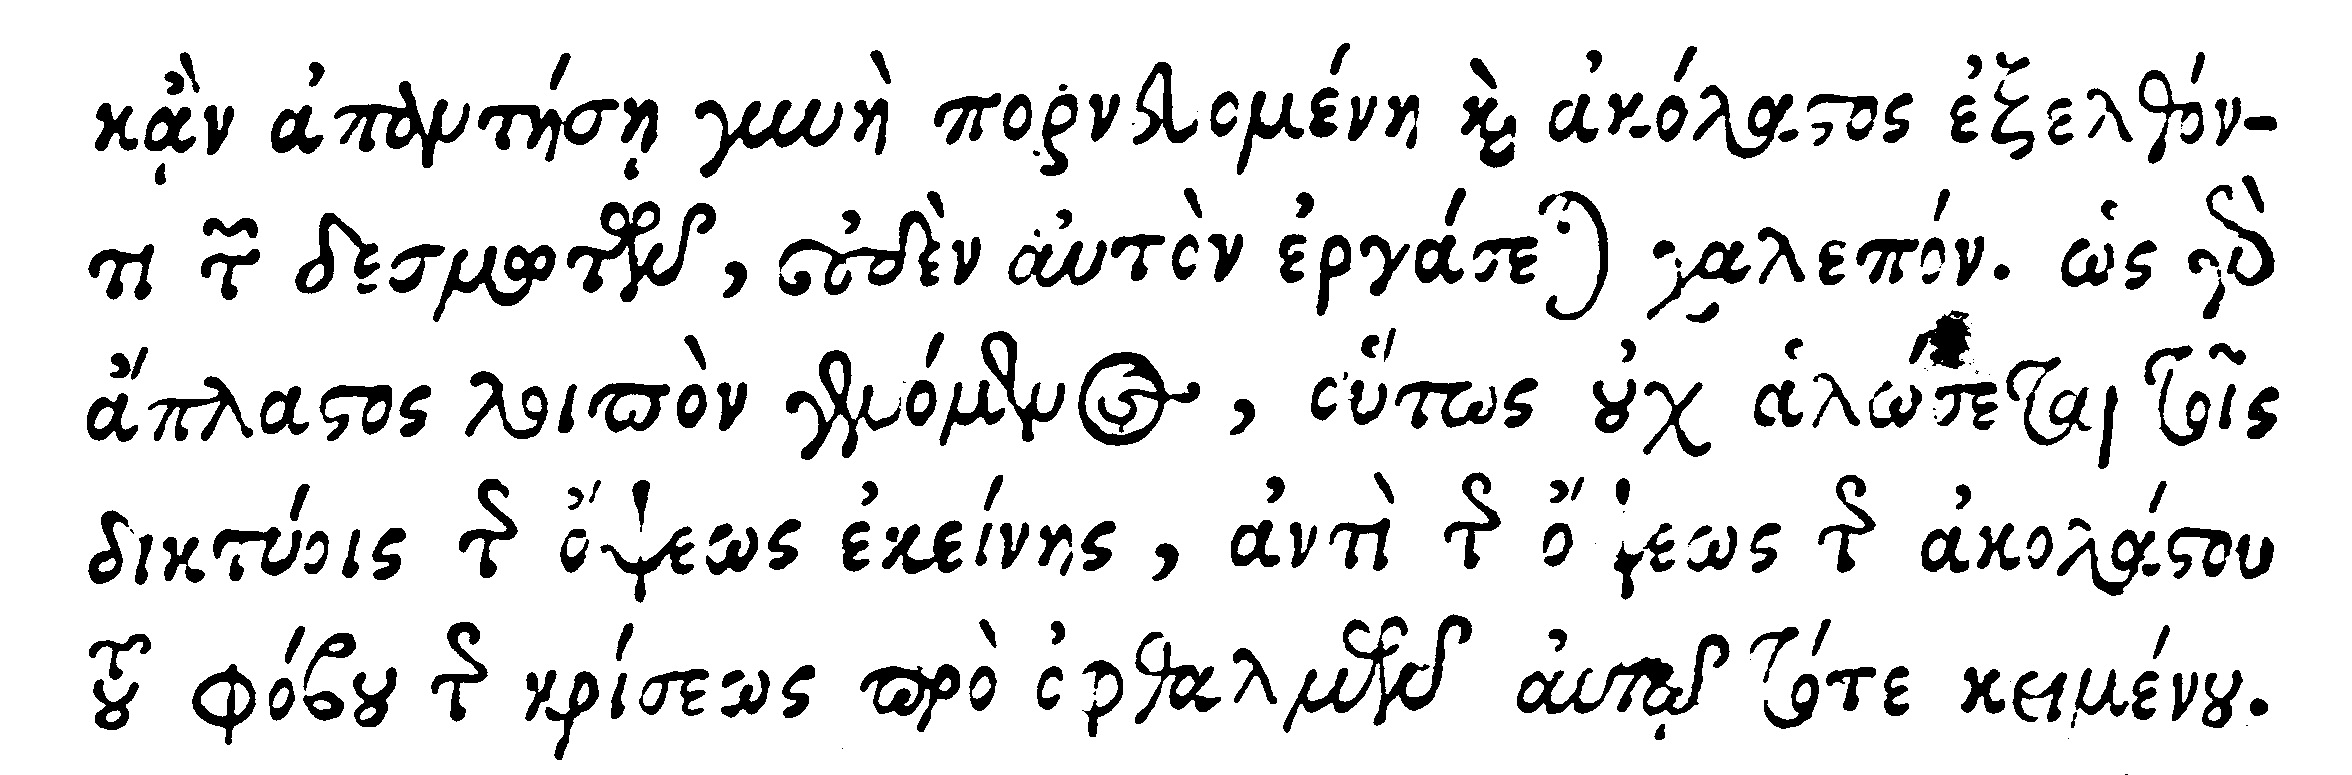 κᾂν ἀπαντήσῃ γυνὴ πορνευομένη καὶ ἀκόλαστος ἐξελθόν-
τι τῶν δεσμωτῶν, οὐδὲν ἀυτὸν ἐργάσεται χαλεπόν. ὡς γὰρ
ἄπλαστος λοιπὸν γενόμενος, οὕτως οὐχ ἁλώσεται τοῖς
δικτύοις τῆς ὄψεως ἐκείνης, ἀντὶ τῆς ὄψεως τῆς ἀκολάστου
τοῦ φόβου τῆς κρίσεως πρὸ ὀφθαλμῶν ἀυτῷ τότε κειμένου.